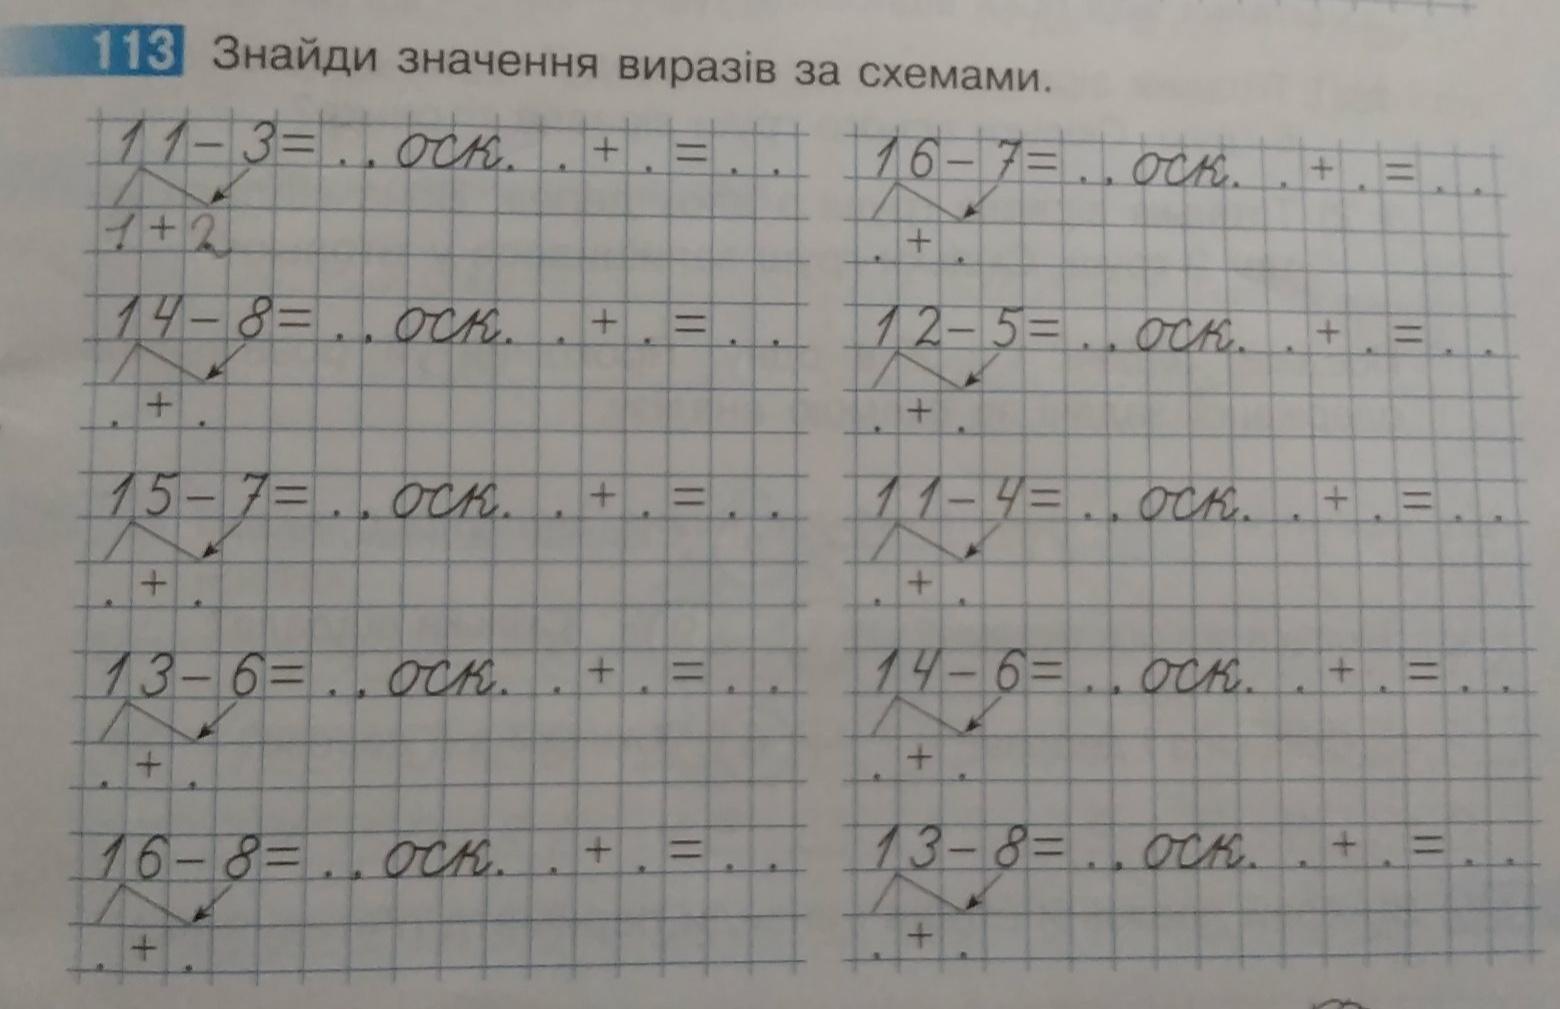 113 Знайди значення виразів за схемами.
11 - 3 = . . оск. . + . = . .
1 + 2
14 - 8 = . . оск. . + . = . .
. + .
15 - 7 = . . оск. . + . = . .
. + .
13 - 6 = . . оск. . + . = . .
. + .
16 - 8 = . . оск. . + . = . .
. + .
16 - 7 = . . оск. . + . = . .
. + .
12 - 5 = . . оск. . + . = . .
. + .
11 - 4 = . . оск. . + . = . .
. + .
14 - 6 = . . оск. . + . = . .
. + .
13 - 8 = . . оск. . + . = . .
. + .